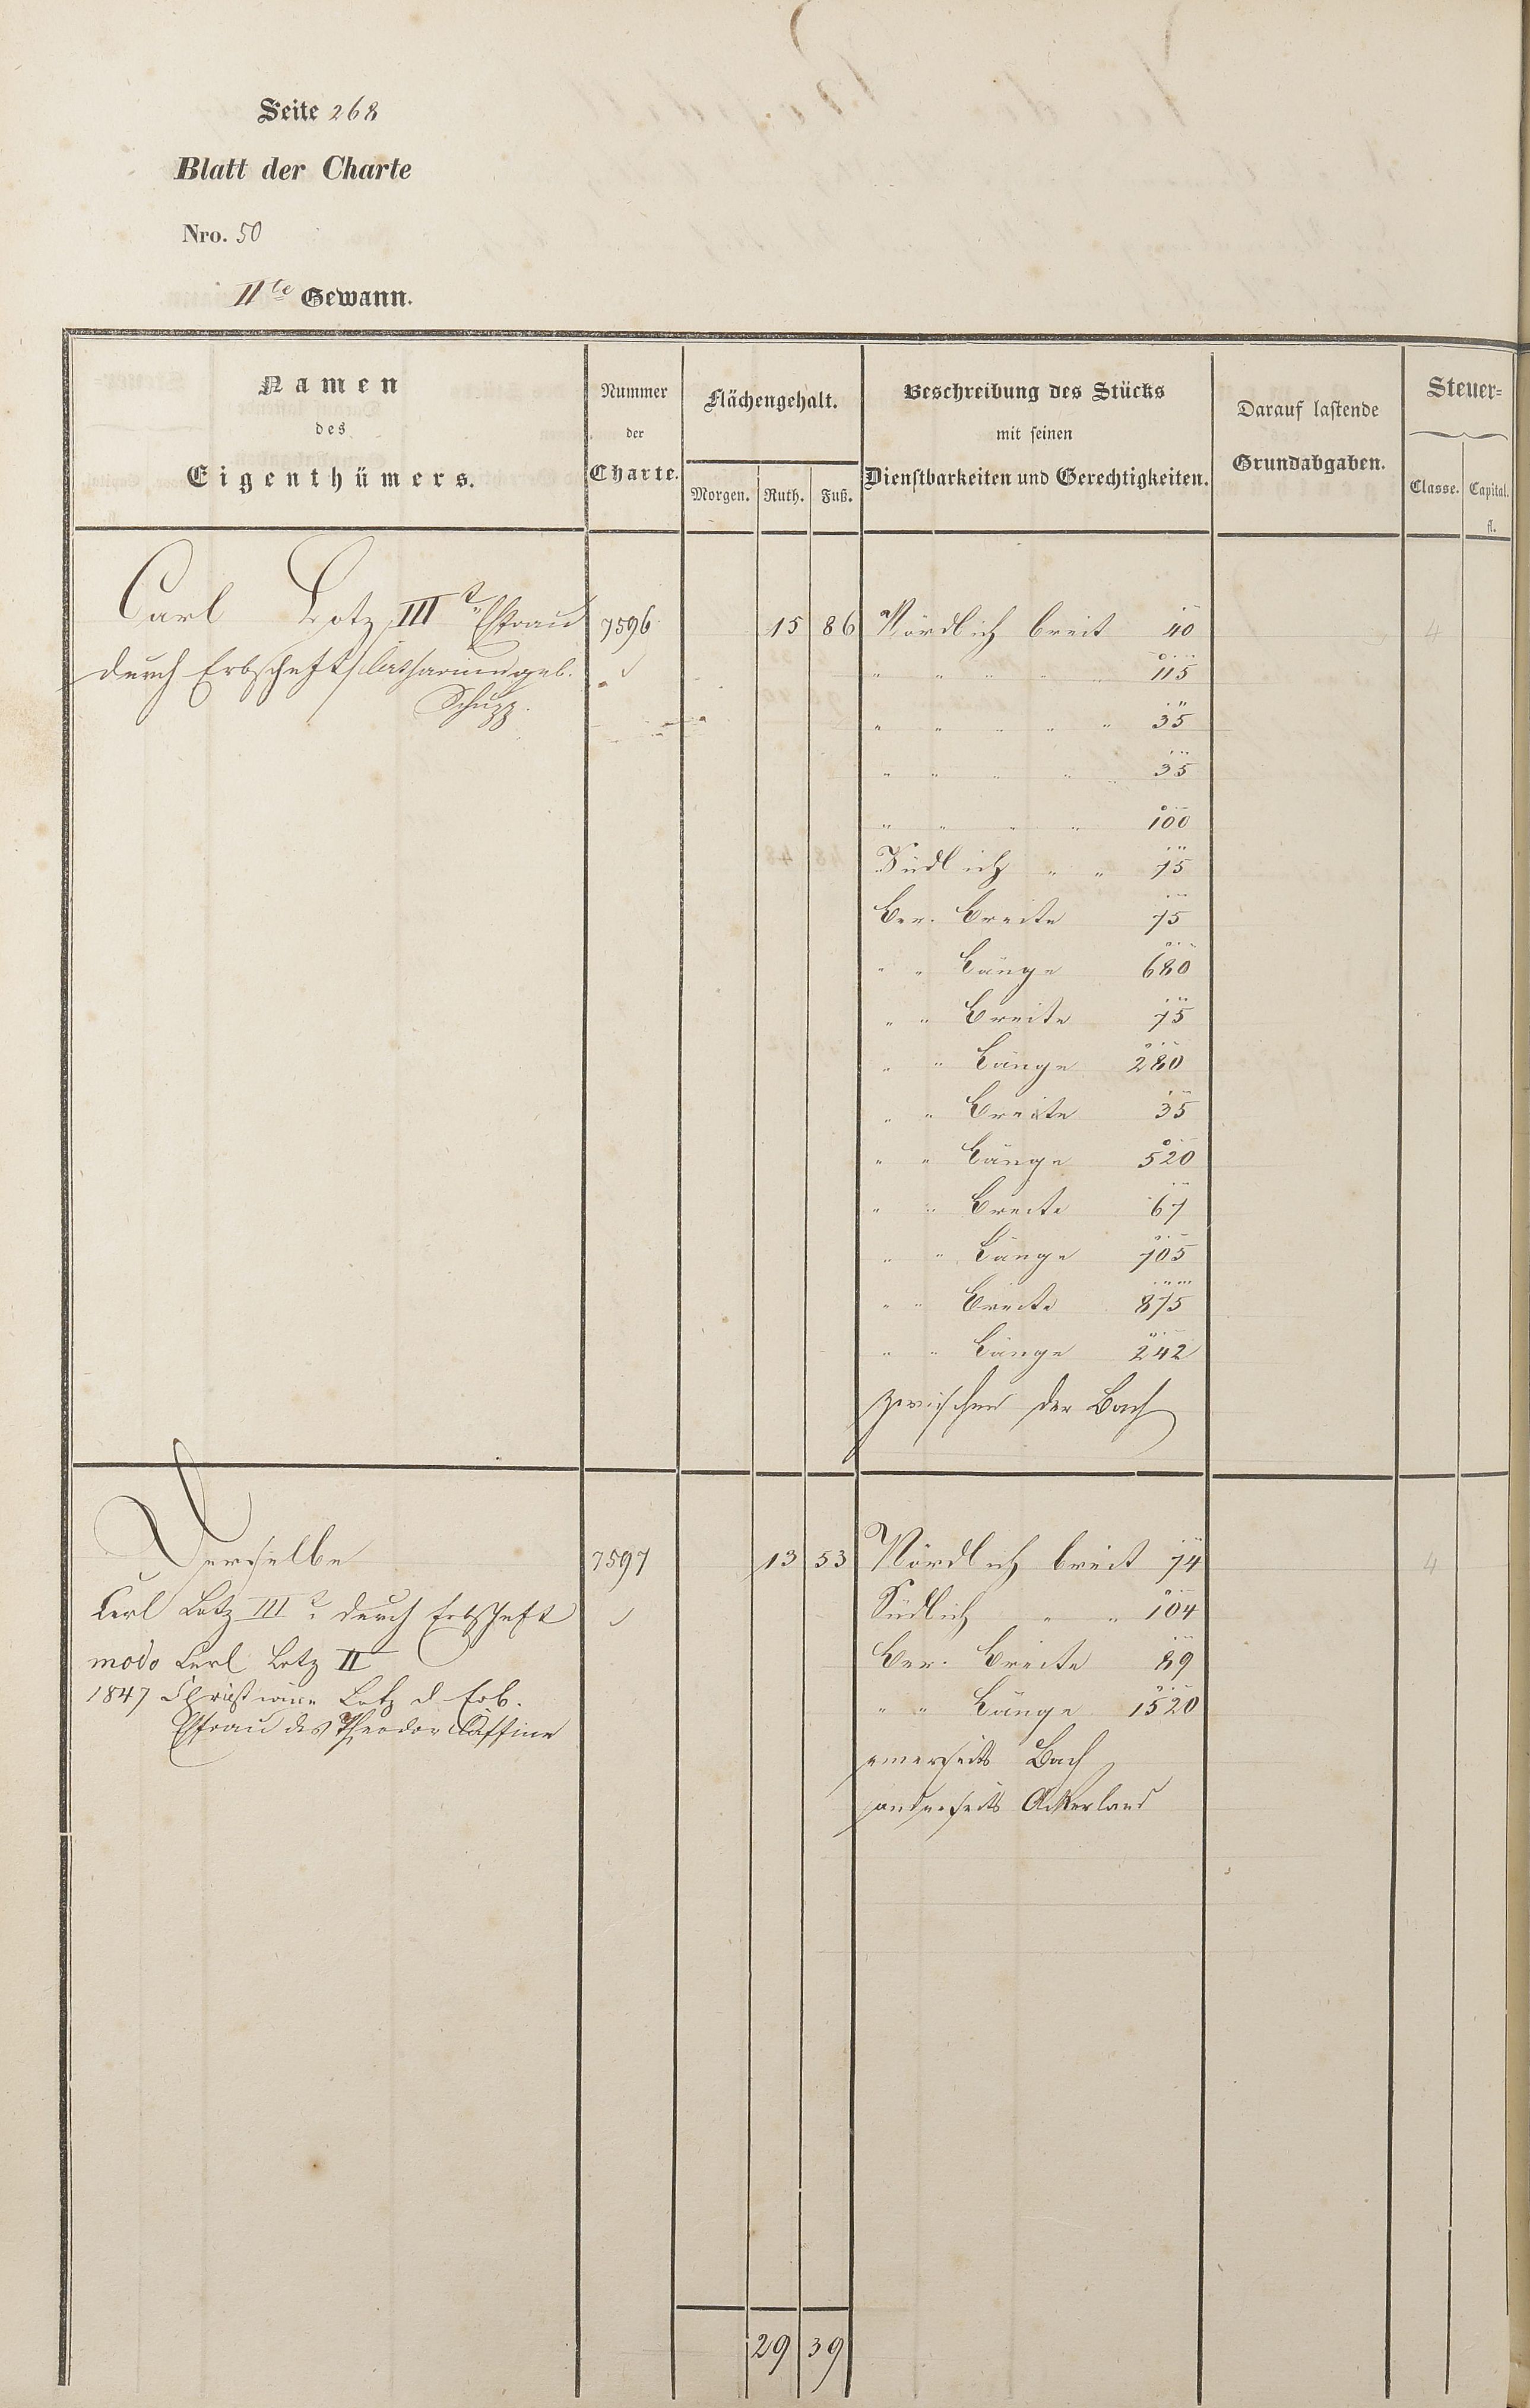 Seite 268
Blatt der Charte
Nro. 50
IIte Gewann.
Namen
des
Eigenthümers.
Nummer
der
Charte.
Flächengehalt.
Morgen. Ruth. Fuß.
Beschreibung des Stücks
mit seinen
Dienstbarkeiten und Gerechtigkeiten.
Darauf lastende
Grundabgaben.
Steuer-
Classe. Capital.
fl.
Carl Lotz IIIt Ehfrau 7596 15 86 Nördlich breit 40 4
durch Erbschaft Catharina geb. " " " " " 115
Schupp. " " " " " 35
" " " " " 35
" " " " 100
Südlich " " 75
Ver. Breite 75
" " Länge 680
" " Breite 75
" " Länge 280
" " Breite 35
" " Länge 520
" " Breite 67
" " Länge 705
" " Breite 875
" " Länge 242
zwischen der Bach
Derselbe 7597 13 53 Nördlich breit 74 4
Carl Lotz IIIt durch Erbschaft Südlich " " 104
modo Carl Lotz II Ver. Breite 89
1847 Christiane Lotz d. Erb. " " Länge 1520
Ehfrau des Theodor einerseits Bach
anderseits Ackerland
29 39